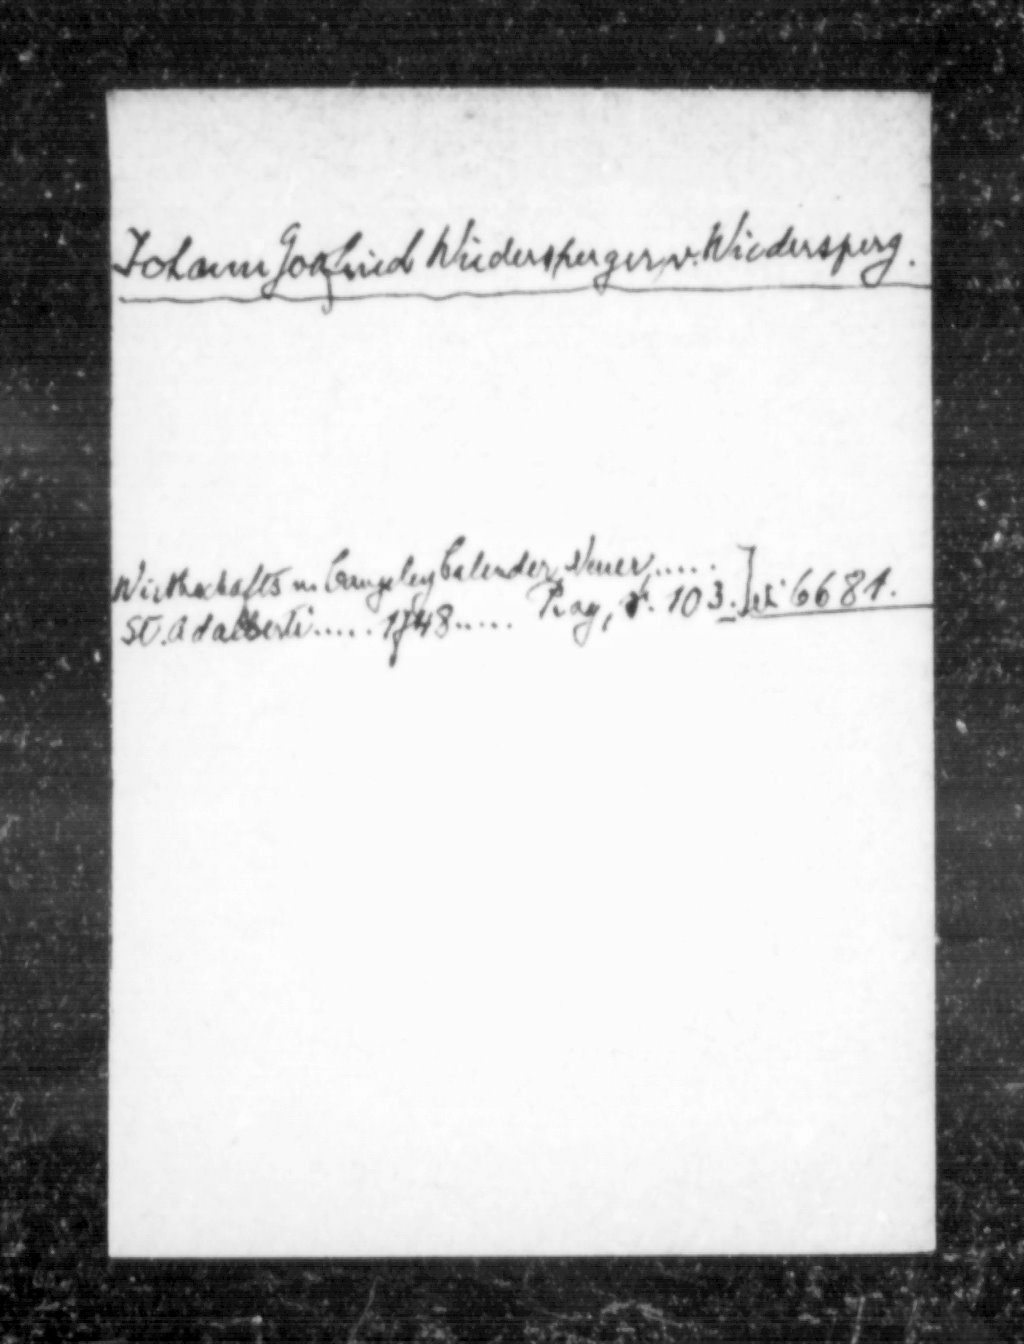 Johann Gottfried Wiedersperger v. Wiedersperg.
Wirthschafts u. Canzeley Calender Neuer.....
St. Adalberti..... 1748..... Prag, f. 103.] 6681.